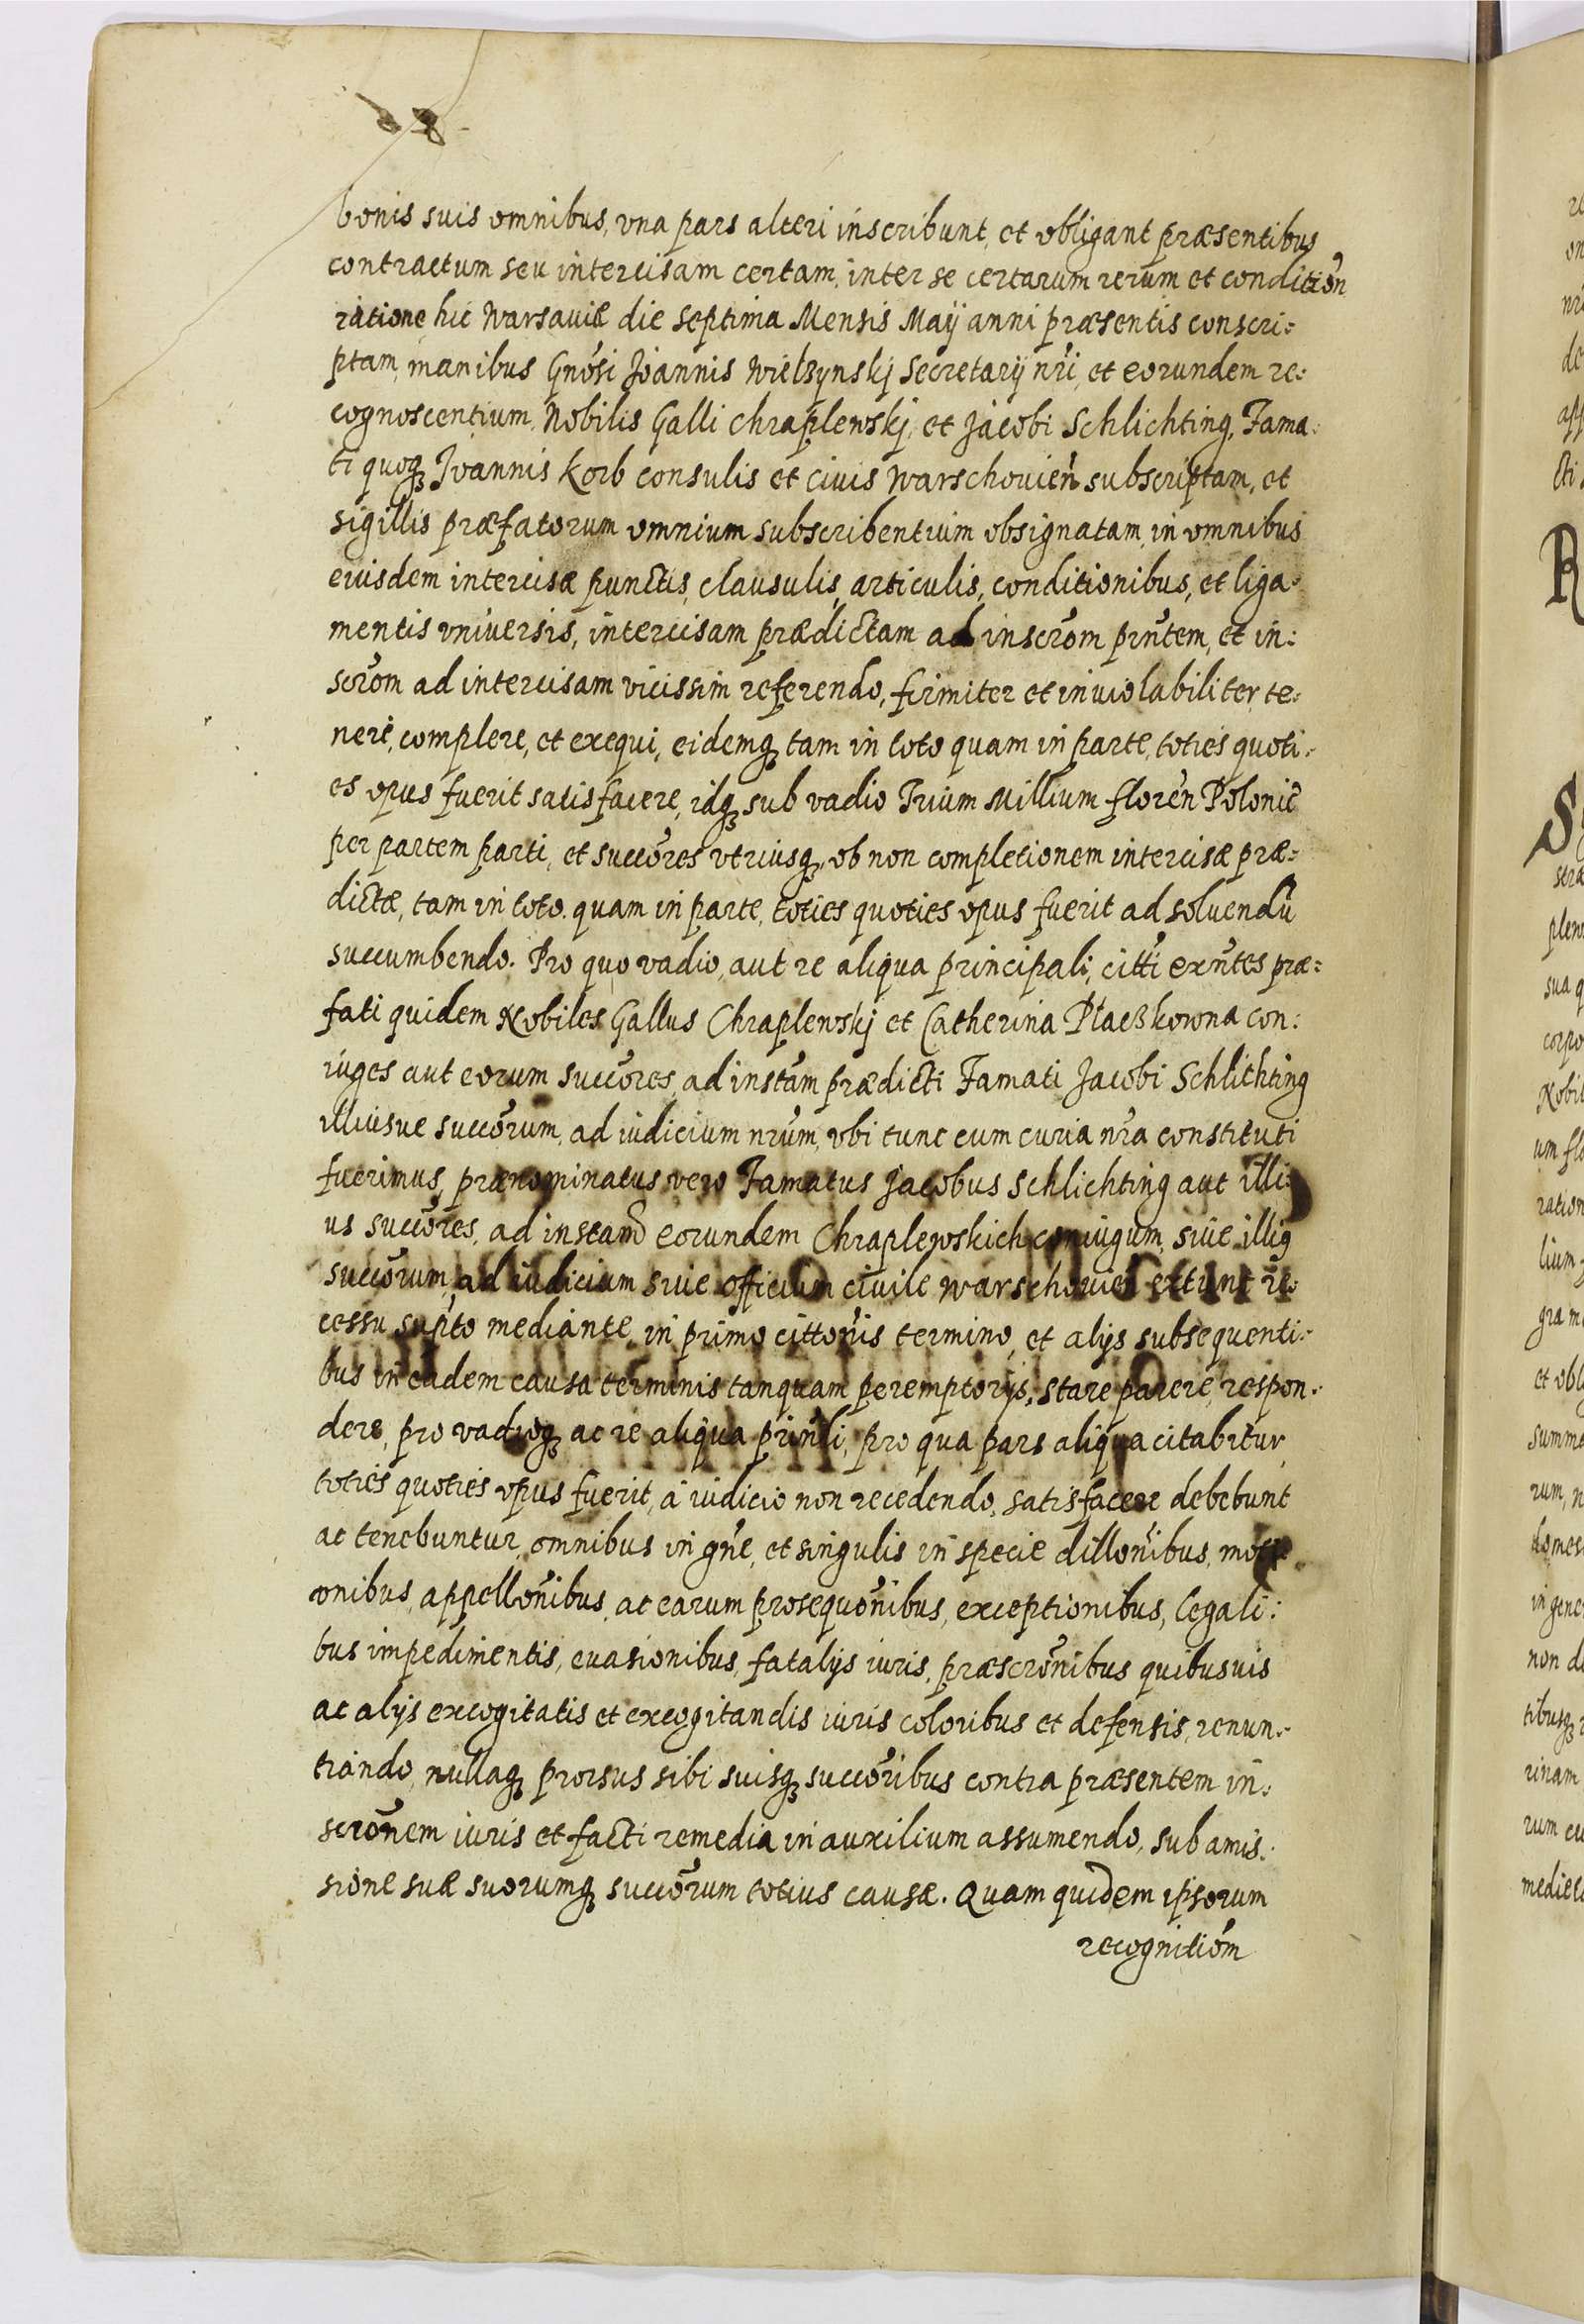 bonis suis omnibus, vna pars alteri inscribunt, et obligant præsentibus
contractum seu intercisam certam, inter se certarum rerum et condition
ratione hic Warsaviæ die septima Mensis Maÿ anni præsentis conscri:
ptam, manibus Gnosi Joannis Wielzynskj Secretarÿ nri, et eorundem re:
cognoscentium, Nobilis Galli Chraplewskj, et Jacobi Schlichting, Fama:
ti quoqꝫ Joannis Korb consulis et ciuis Warschouien subscriptam, et
sigillis præfatorum omnium subscribentium obsignatam, in omnibus
eiusdem intercisæ punctis, clausulis, articulis, conditionibus, et liga:
mentis vniuersis, intercisam prædictam ad inscrom prntem, et in:
scrom ad intercisam vicissim referendo, firmiter et inuiolabiliter te:
neri, complere, et exequi, eidemqꝫ tam in toto quam in parte, toties quoti:
es opus fuerit satisfacere, idqꝫ sub vadio Trium Millium floren Polonic
per partem parti, et succores vtriusqꝫ, ob non completionem intercisæ præ:
dictæ, tam in toto quam in parte, toties quoties opus fuerit ad soluendū
succumbendo. Pro quo vadio, aut re aliqua principali, citti exntes præ:
fati quidem Nobiles Gallus Chraplewskj et Catherina Ptaeßkowna con:
iuges aut eorum succores, ad instam prædicti Famati Jacobi Schlichting
illiusue succorum, ad iudicium nrum, vbi tunc cum curia nra constituti
fuerimus, prænominatus vero Famatus Jacobus Schlichting aut illi:
us succores, ad instam eorundem Chraplewskich coniugum, siue illig
succorum, ad iudicium siue officium ciuile Warschouien et tunc re:
cessu supto mediante, in primo cittonis termino, et alÿs subsequenti:
bus in eadem causa terminis tanquam peremptorÿs, stare parere, respon:
dere, pro vadioqꝫ ac re aliqua prinli, pro qua pars aliqua citabitur,
toties quoties opus fuerit, a iudicio non recedendo, satisfacere debebunt
ac tenebuntur, omnibus in gne, et singulis in specie dillonibus,
onibus, appellonibus, ac earum prosequonibus, exceptionibus, legali:
bus impedimentis, euasionibus, fatalÿs iuris, præscronibus quibusuis
ac alÿs excogitatis et excogitandis iuris coloribus et defensis, renun:
tiando, nullaqꝫ prorsus sibi suisqꝫ succoribus contra præsentem in:
scronem iuris et facti remedia in auxilium assumendo, sub amis:
sione suæ suorumqꝫ succorum totius causæ. Quam quidem ipsorum
recognitiom